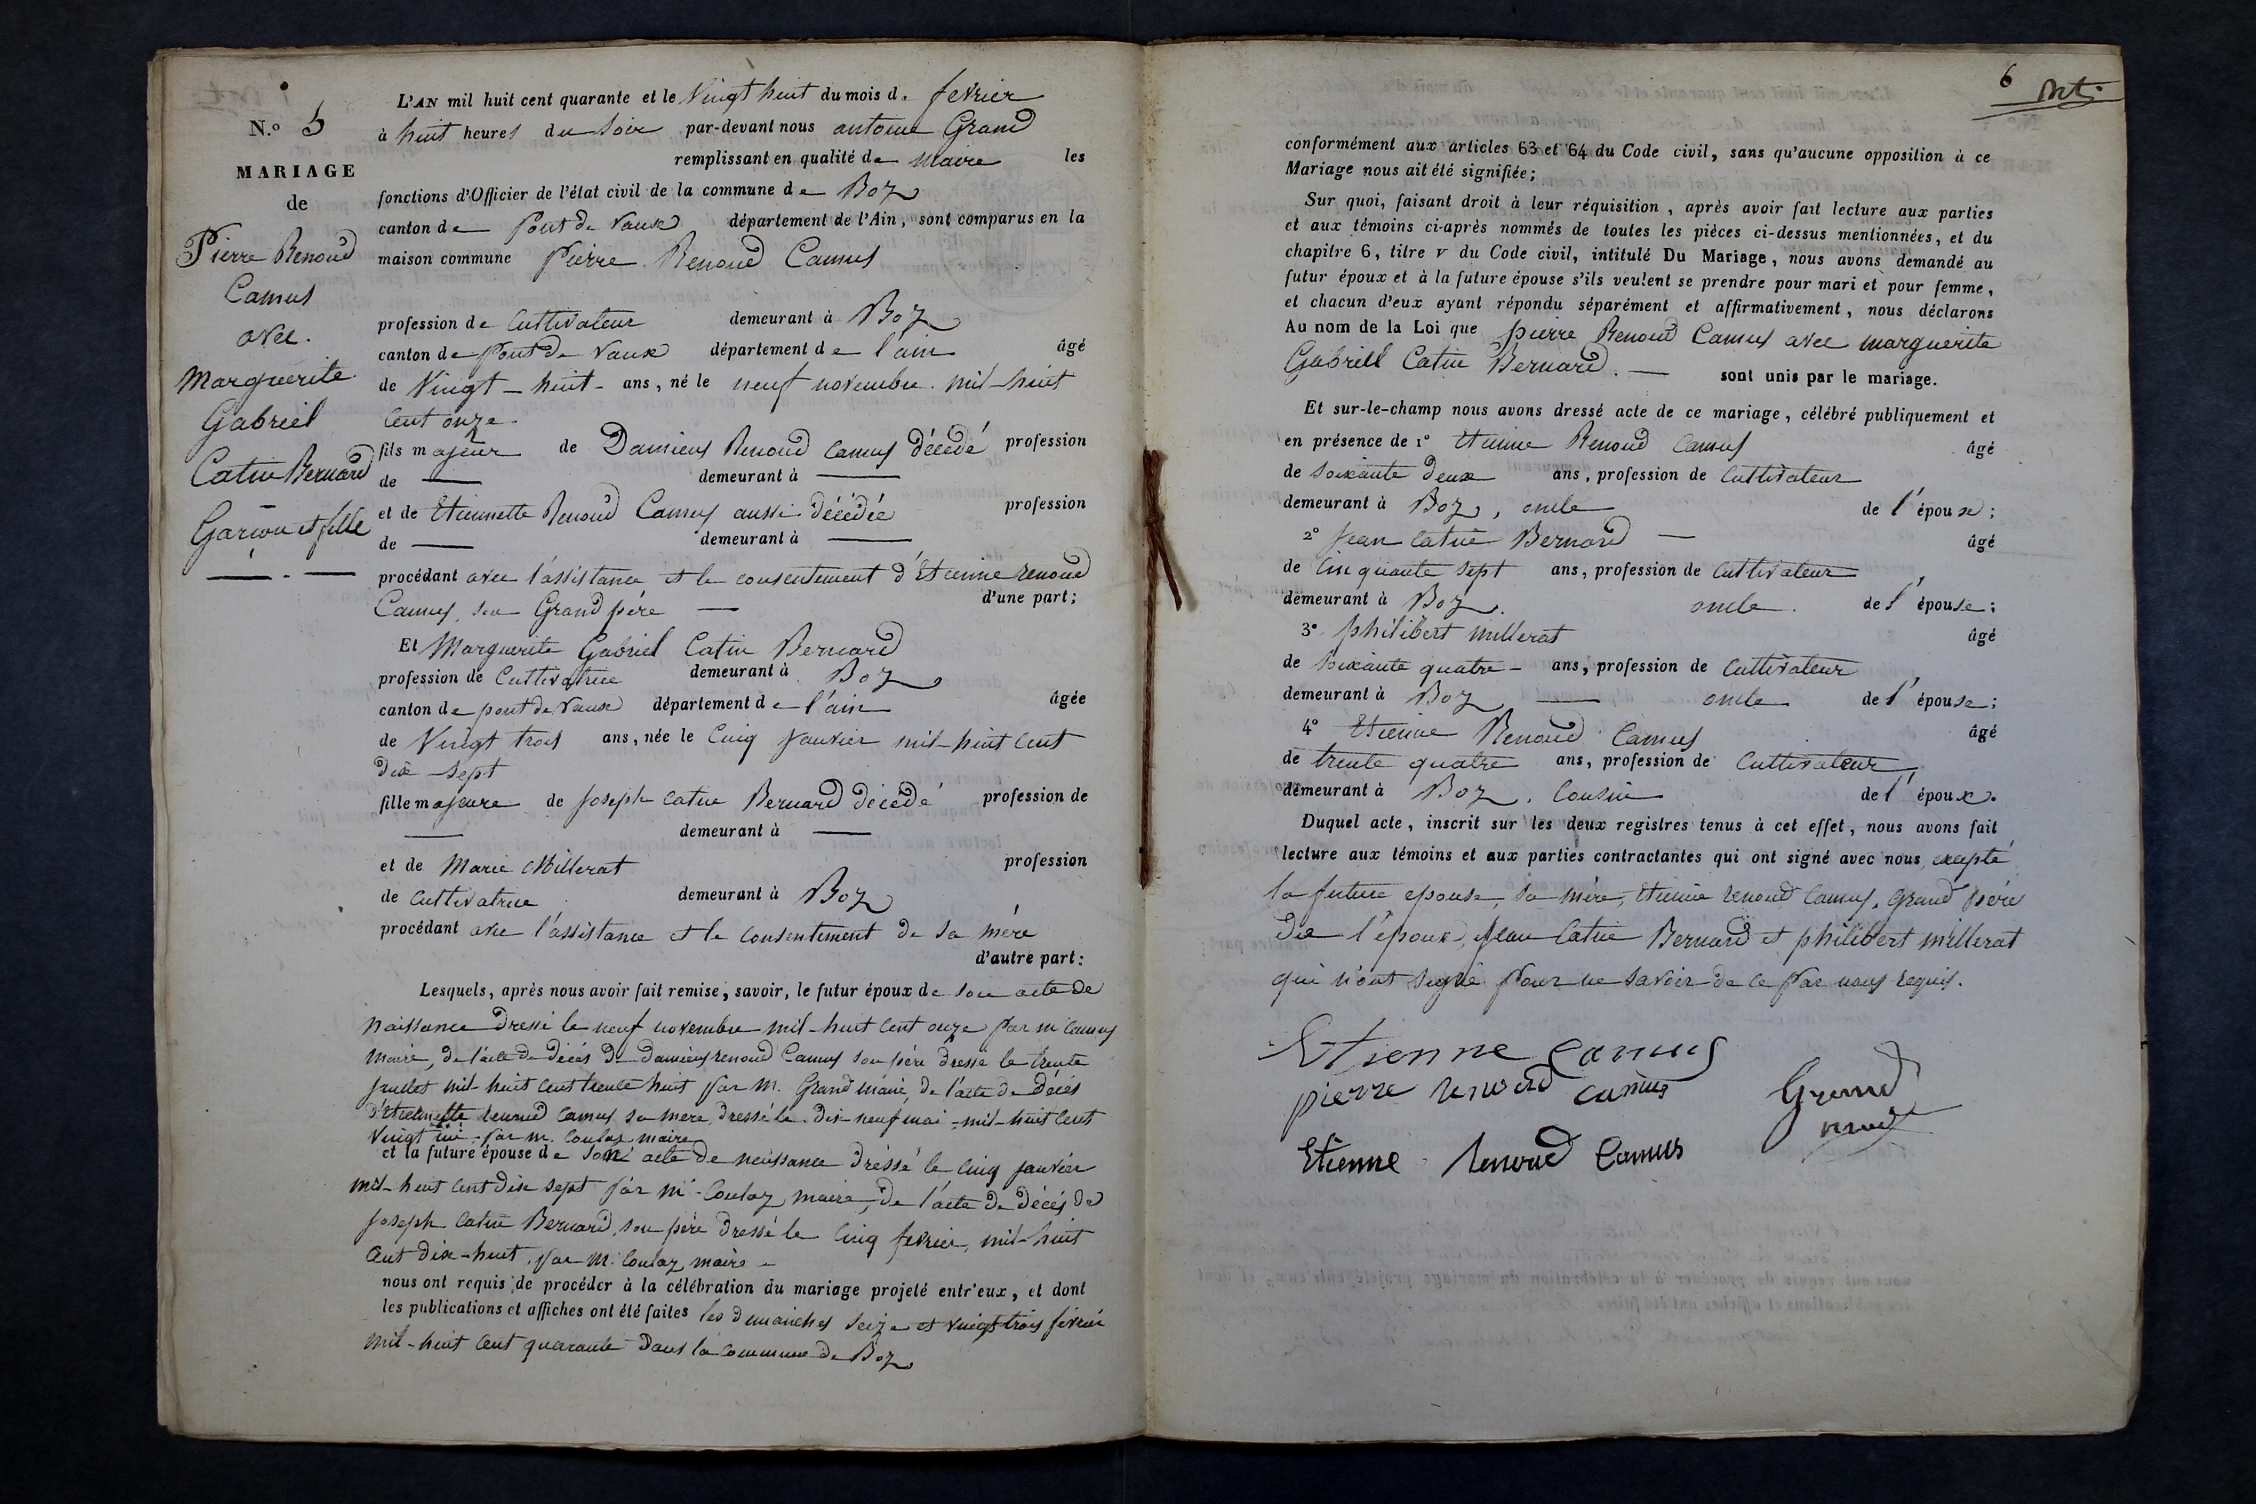 N.º 5
MARIAGE
de
Pierre Renoud
Camus
avec
Marguerite
Gabriel
Catin Bernard
Garçon et fille
L'AN mil huit cent quarante et le Vingt huit du mois d. fevrier
à huit heures du soir par-devant nous antoine Grand
remplissant en qualité de maire les
fonctions d'Officier de l'état civil de la commune de Boz
canton de Pont de Vaux département de l'Ain, sont comparus en la
maison commune Pierre Renoud Camus
profession de Cultivateur demeurant à Boz
canton de Pont de Vaux département de l'ain âgé
de Vingt-huit ans, né le neuf novembre mil-huit
cent onze
fils majeur de Damiens Renoud Camus décédé profession
de — demeurant à —
et de Etiennette Renoud Camus aussi décédée profession
de — demeurant à —
procédant avec l'assistance et le consentement d'Etienne renoud
Camus, son Grand père — d'une part;
Et Marguerite Gabriel Catin Bernard
profession de Cultivatrice demeurant à Boz
canton de pont de Vaux département de l'ain âgée
de Vingt trois ans, née le Cinq Janvier mil-huit cent
dix-sept
fille majeure de Joseph Catin Bernard décédé profession de
— demeurant à —
et de Marie Millerat profession
de cultivatrice demeurant à Boz
procédant avec l'assistance et le consentement de sa mère
d'autre part:
Lesquels, après nous avoir fait remise, savoir, le futur époux de son acte de
naissance dressé le neuf novembre mil-huit cent onze par m. Camus
maire, de l'acte de décès de damiens renoud Camus son père dressé le trente
juillet mil-huit cent trente huit par M. Grand maire, de l'acte de décès
d'Etiennette renoud Camus sa mère dressé le dix neuf mai mil-huit cent
Vingt par m. Coulaz maire
et la future épouse de son acte de naissance dressé le cinq janvier
mil-huit cent dix sept par M. Coulaz, maire, de l'acte de décès de
Joseph Catin Bernard, son père dressé le Cinq fevrier, mil-huit
Cent dix-huit, par M. Coulaz, maire
nous ont requis de procéder à la célébration du mariage projeté entr'eux, et dont
les publications et affiches ont été faites les dimanches seize et vingt trois février
mil-huit cent quarante Dans la commune de Boz
6
conformément aux articles 63 et 64 du Code civil, sans qu'aucune opposition à ce
Mariage nous ait été signifiée;
Sur quoi, faisant droit à leur réquisition, après avoir fait lecture aux parties
et aux témoins ci-après nommés de toutes les pièces ci-dessus mentionnées, et du
chapitre 6, titre V du Code civil, intitulé Du Mariage, nous avons demandé au
futur époux et à la future épouse s'ils veulent se prendre pour mari et pour femme,
et chacun d'eux ayant répondu séparément et affirmativement, nous déclarons
Au nom de la Loi que pierre Renoud Camus avec marguerite
Gabriell Catin Bernard. — sont unis par le mariage.
Et sur-le-champ nous avons dressé acte de ce mariage, célébré publiquement et
en présence de 1º Etienne Renoud Camus âgé
de soixante deux ans, profession de Cultivateur
demeurant à Boz, oncle de l'épouse;
2º Jean Catin Bernard — âgé
de Cinquante sept ans, profession de Cultivateur
demeurant à Boz. oncle de l'épouse;
3º philibert millerat âgé
de soixante quatre ans, profession de Cultivateur
demeurant à Boz — oncle de l'épouse;
4º Etienne Renoud Camus âgé
de trente quatre ans, profession de Cultivateur
demeurant à Boz, Cousin de l'époux.
Duquel acte, inscrit sur les deux registres tenus à cet effet, nous avons fait
lecture aux témoins et aux parties contractantes qui ont signé avec nous, excepté
la future epouse, sa mère, Etienne renoud Camus, Grand père
de l'époux, Jean Catin Bernard et philibert millerat
qui n'ont signé pour ne savoir de ce par nous requis.
Etienne Camus
pierre renoud camus
Grand
Etienne Renoud Camus